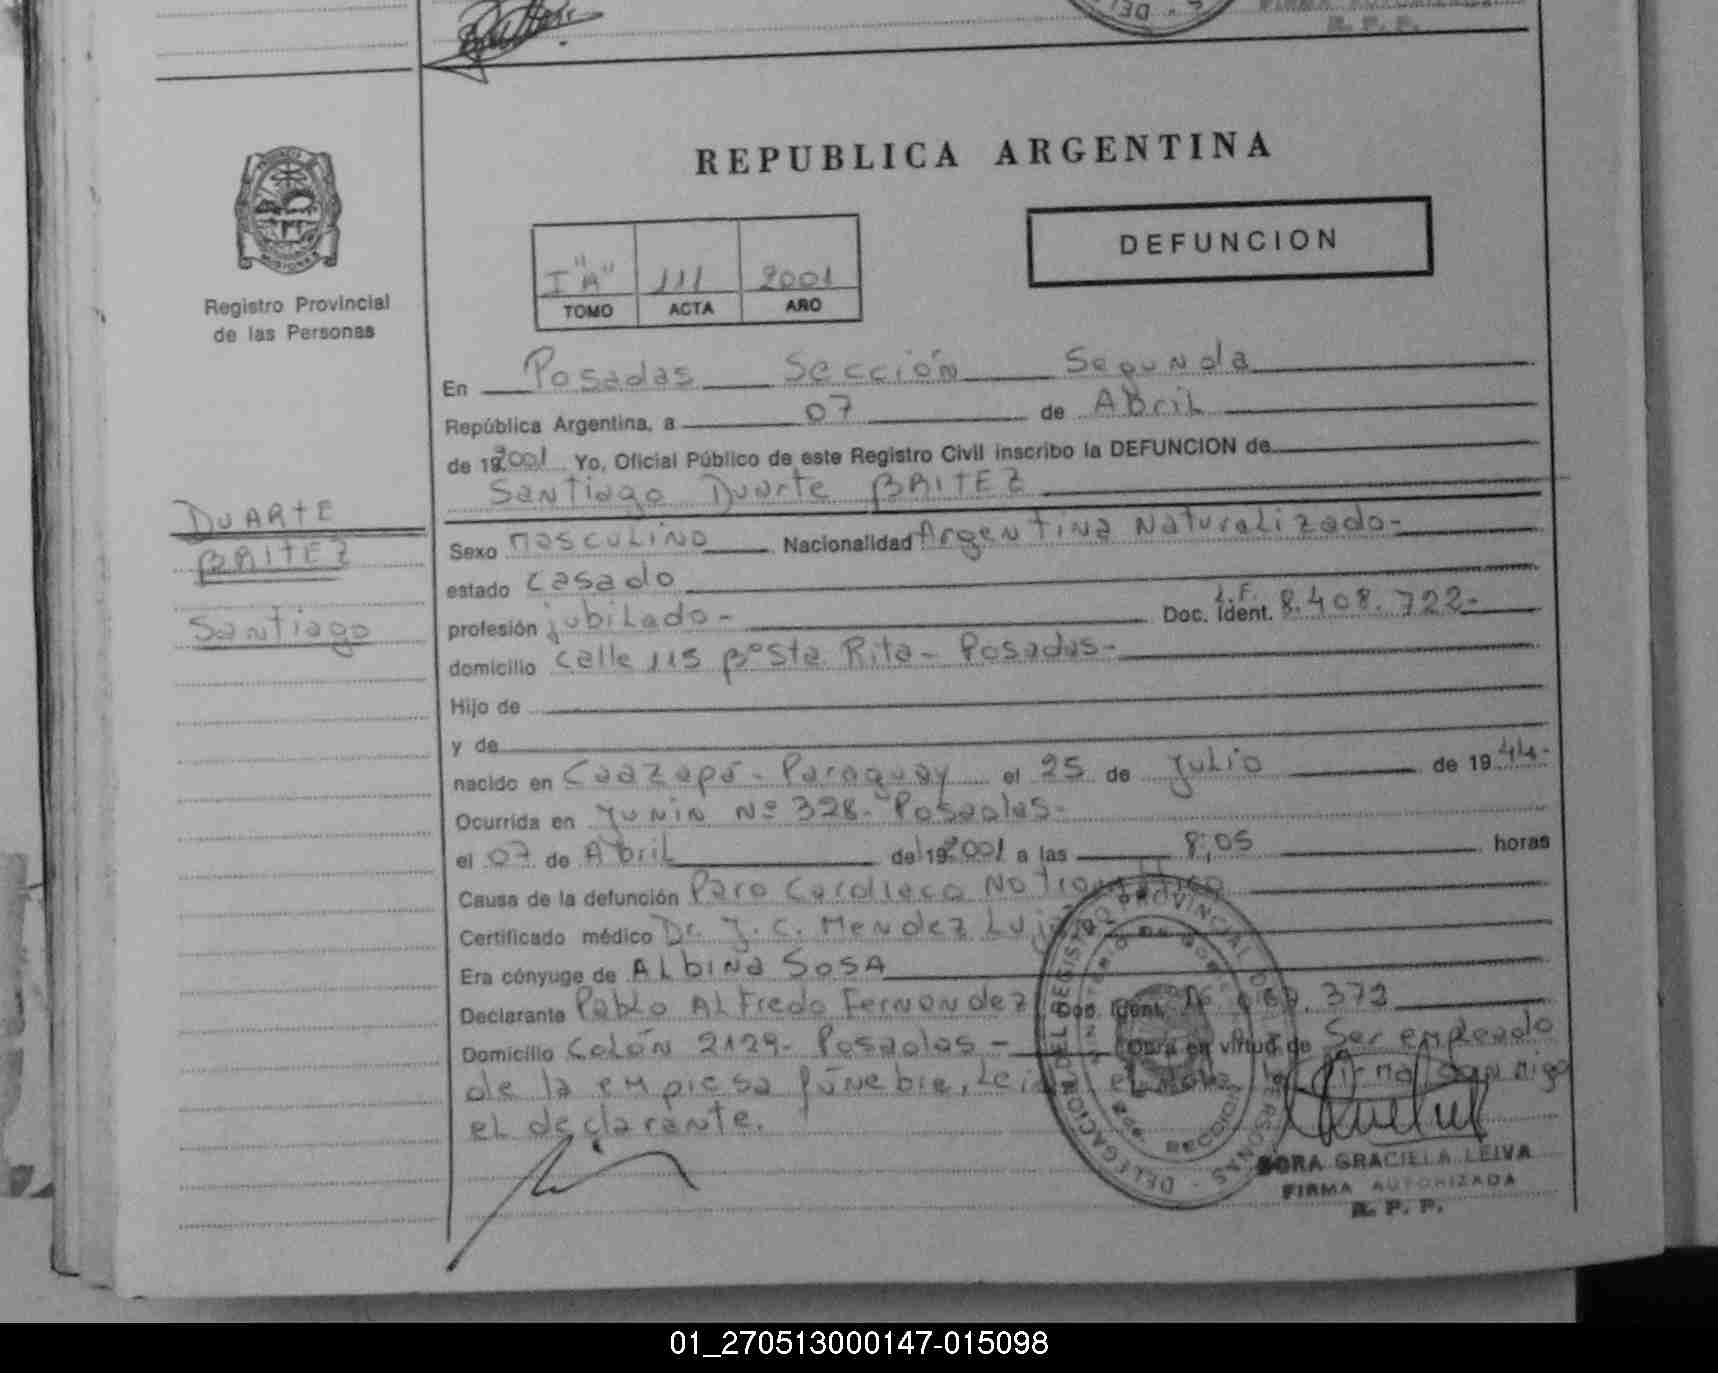 FIRMA AUTORIZADA
R. P. P.
REPUBLICA ARGENTINA
Registro Provincial
de las Personas
I "A" 111 2001
TOMO ACTA AÑO
DEFUNCION
En Posadas Sección Segunda
República Argentina, a 07 de Abril
de 192001 Yo, Oficial Público de este Registro Civil inscribo la DEFUNCION de
Santiago Duarte BRITEZ
DUARTE
BRITEZ
Santiago
Sexo masculino Nacionalidad Argentina Naturalizado-
estado casado
profesión jubilado- Doc. Ident. L.F. 8.408.722-
domicilio calle 115 Bº Sta Rita- Posadas-
Hijo de
y de
nacido en Caazapá- Paraguay el 25 de Julio de 1944-
Ocurrida en Junin Nº 328- Posadas-
el 07 de Abril de 192001 a las 8,05 horas
Causa de la defunción Paro Cardíaco No Traumático
Certificado médico Dr. J. C. Mendez
Era cónyuge de ALbina SosA
Declarante Pablo ALfredo Fernandez Doc. Ident. 372
Domicilio Colón 2129- Posadas- Obra en virtud de Ser empleado
de la empresa fúnebre, Leída el Acta la firma conmigo
el declarante.
DELEGACION DEL REGISTRO PROVINCIAL DE LAS PERSONAS
SECCION
DORA GRACIELA LEIVA
FIRMA AUTORIZADA
R. P. P.
01_270513000147-015098